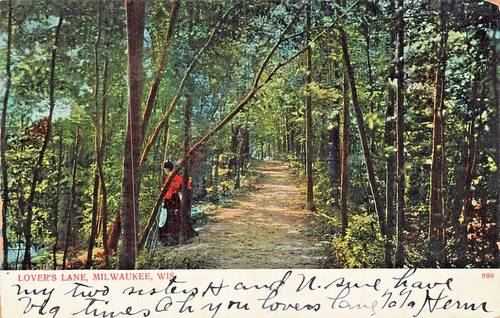 LOVER'S LANE, MILWAUKEE, WIS.
908
my two sisters H and N. sure have
big times Oh you lovers lane Ha Ha Herm